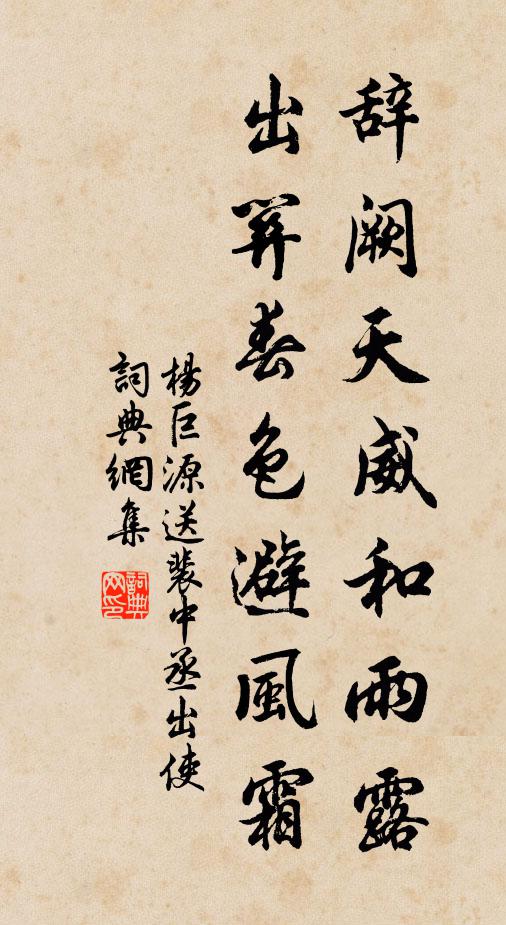 辞闕天威和雨露
出關春色避風霜
楊巨源送裴中丞出使
詞典網集
詞典
网印